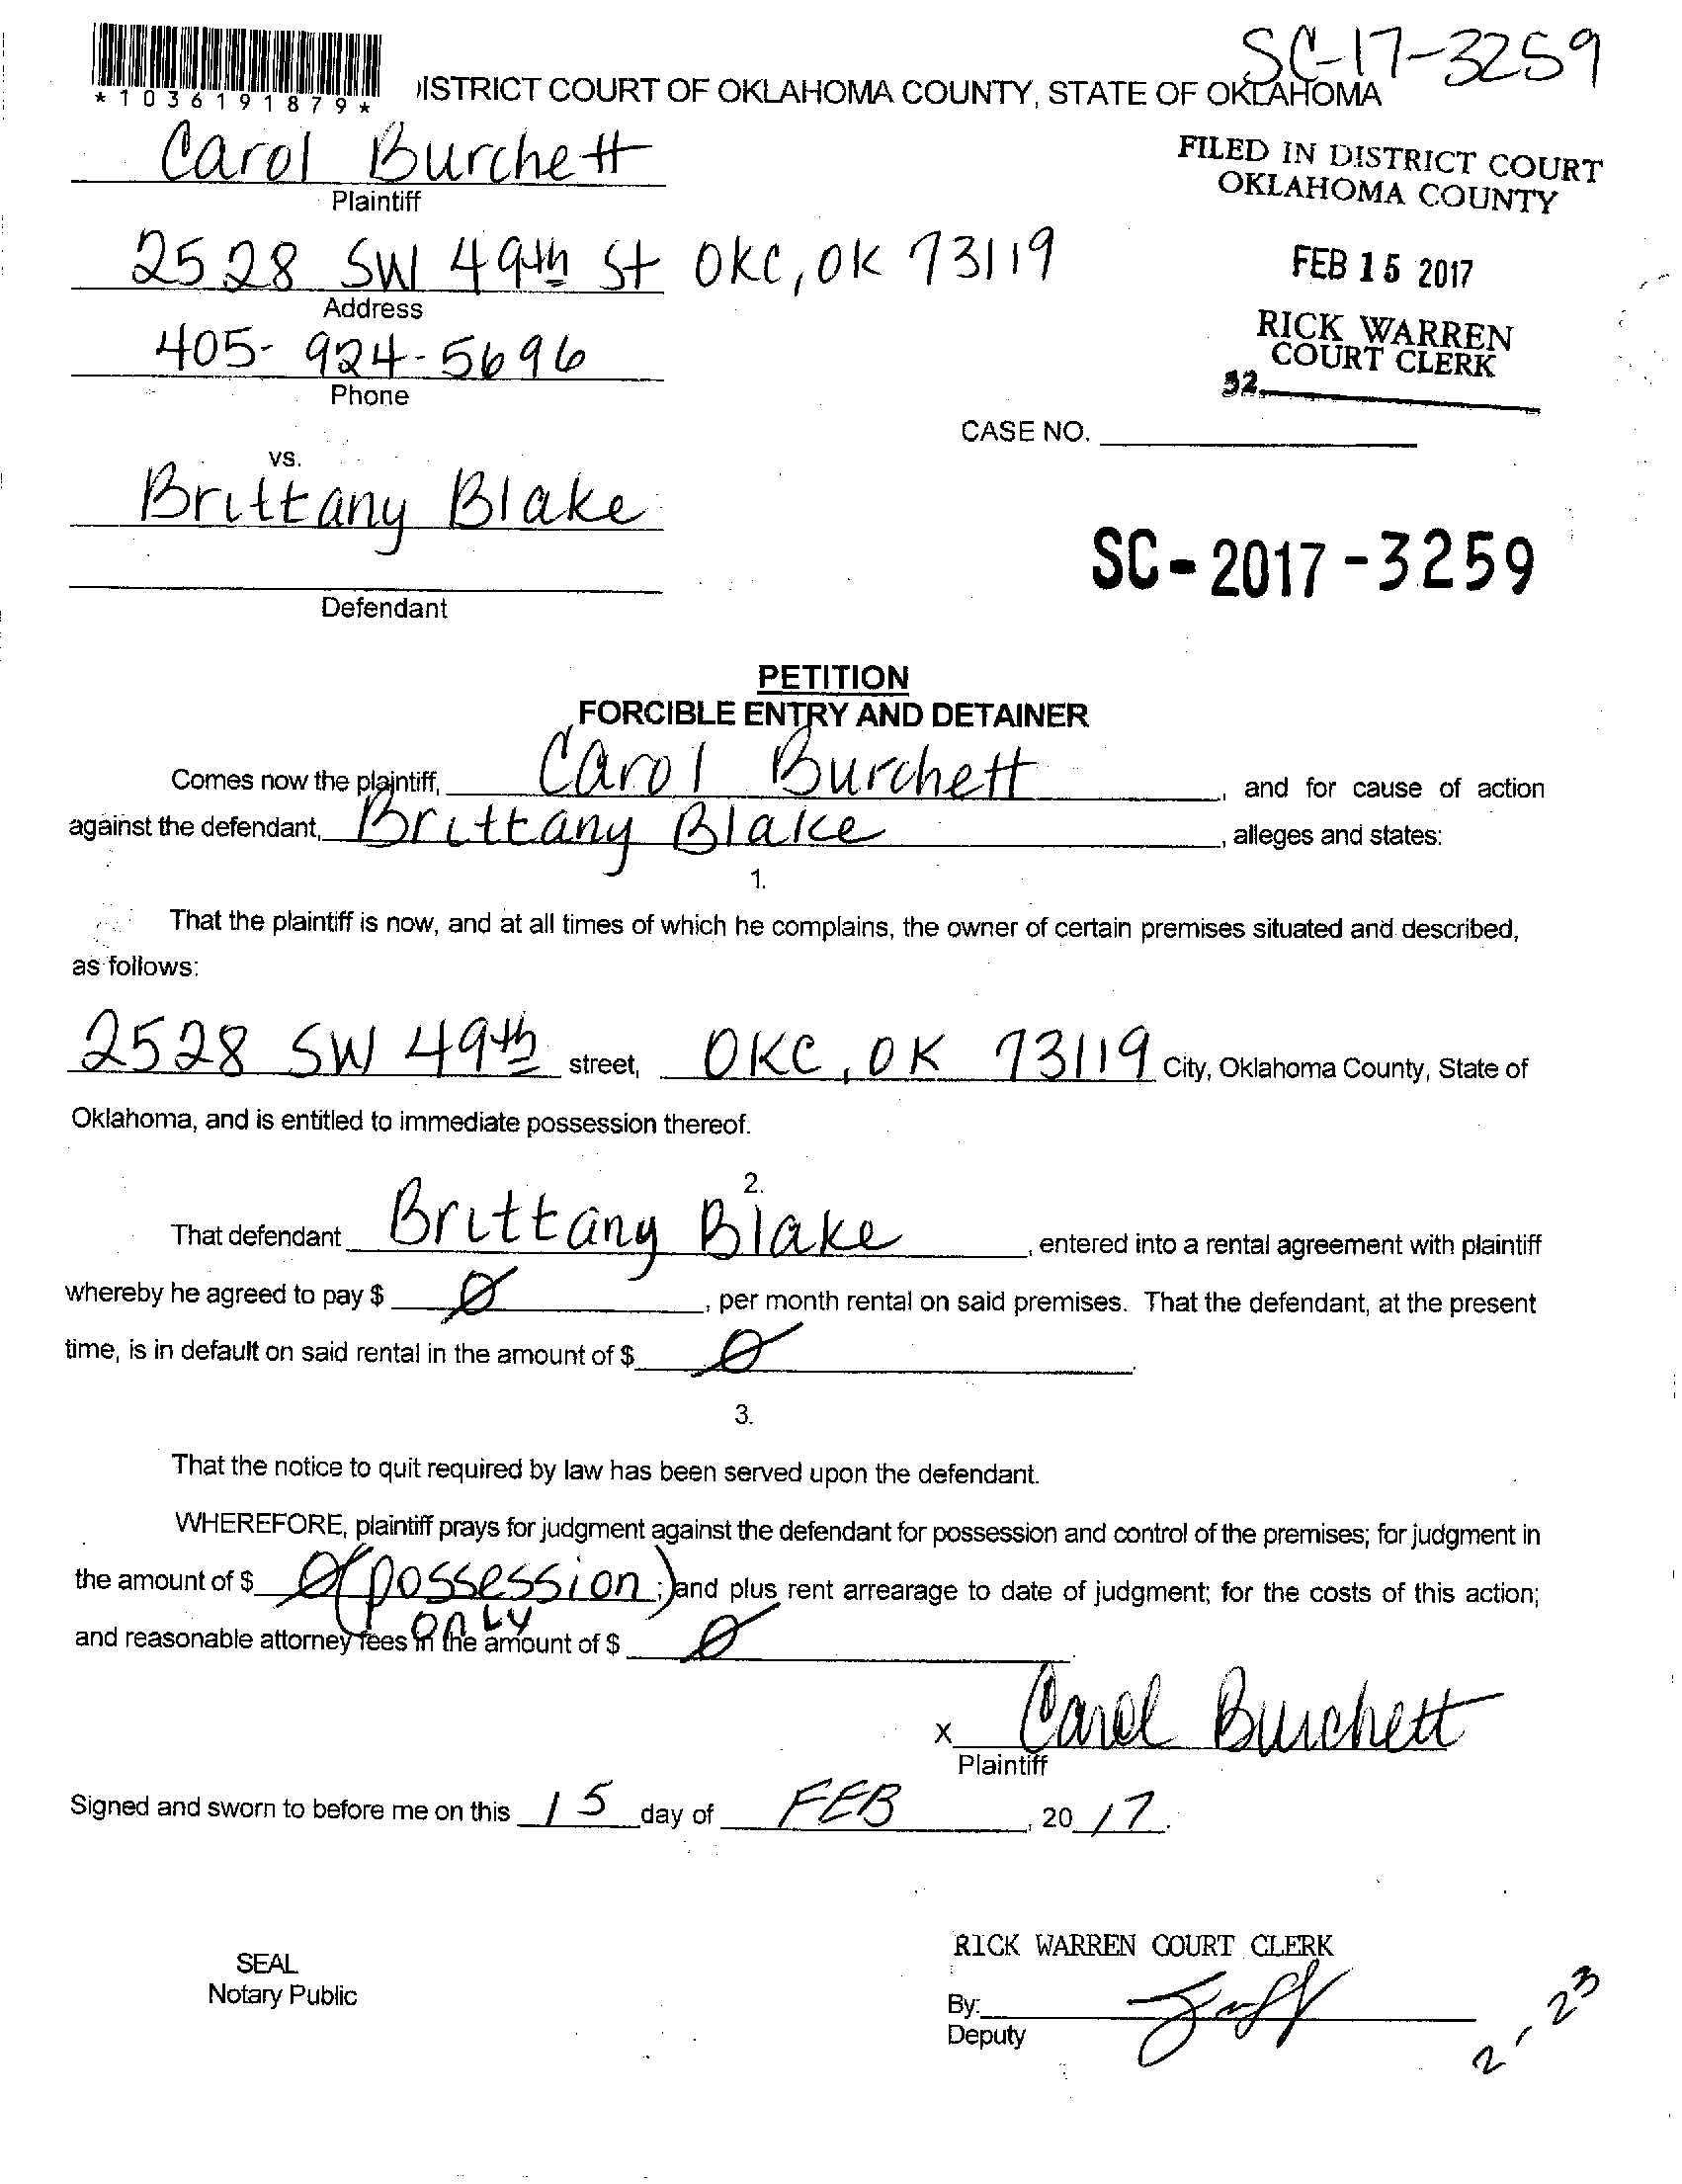 SC-17-3259
*1036191879*
DISTRICT COURT OF OKLAHOMA COUNTY, STATE OF OKLAHOMA
Carol Burchett
Plaintiff
FILED IN DISTRICT COURT
OKLAHOMA COUNTY
2528 SW 49th St OKC, OK 73119
Address
FEB 15 2017
405-924-5696
Phone
RICK WARREN
COURT CLERK
32
CASE NO.
vs.
Brittany Blake
Defendant
SC-2017-3259
PETITION
FORCIBLE ENTRY AND DETAINER
Comes now the plaintiff, Carol Burchett, and for cause of action
against the defendant, Brittany Blake, alleges and states:
1.
That the plaintiff is now, and at all times of which he complains, the owner of certain premises situated and described,
as follows:
2528 SW 49th street, OKC, OK 73119 City, Oklahoma County, State of
Oklahoma, and is entitled to immediate possession thereof.
2.
That defendant Brittany Blake, entered into a rental agreement with plaintiff
whereby he agreed to pay $ Ø, per month rental on said premises. That the defendant, at the present
time, is in default on said rental in the amount of $ Ø.
3.
That the notice to quit required by law has been served upon the defendant.
WHEREFORE, plaintiff prays for judgment against the defendant for possession and control of the premises; for judgment in
the amount of $ Ø (possession; ) and plus rent arrearage to date of judgment; for the costs of this action;
only
and reasonable attorney fees in the amount of $ Ø.
x Carol Burchett
Plaintiff
Signed and sworn to before me on this 15 day of FEB, 20 17.
SEAL
Notary Public
RICK WARREN COURT CLERK
By:
Deputy
2-23